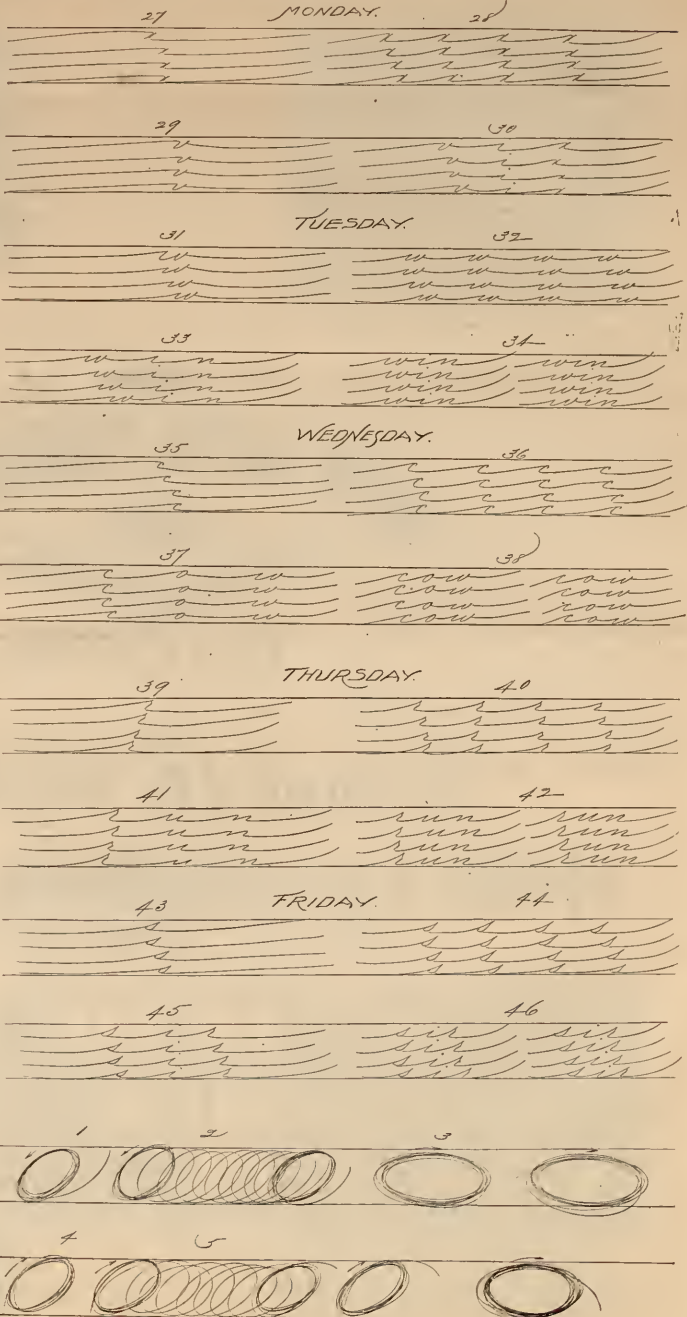 27 MONDAY. 28
x x x x x
x x x x x
x x x x x
x x x x x
29 30
v v i x
v v i x
v v i x
v v i x
TUESDAY.
31 32
w w w w w
w w w w w
w w w w w
w w w w w
33 34
w i n win win
w i n win win
w i n win win
w i n win win
WEDNESDAY.
35 36
c c c c c
c c c c c
c c c c c
c c c c c
37 38
c o w cow cow
c o w cow cow
c o w cow cow
c o w cow cow
THURSDAY.
39 40
r r r r r
r r r r r
r r r r r
r r r r r
41 42
r u n run run
r u n run run
r u n run run
r u n run run
43 FRIDAY. 44
s s s s s
s s s s s
s s s s s
s s s s s
45 46
s i r sir sir
s i r sir sir
s i r sir sir
s i r sir sir
1 2 3
4 5